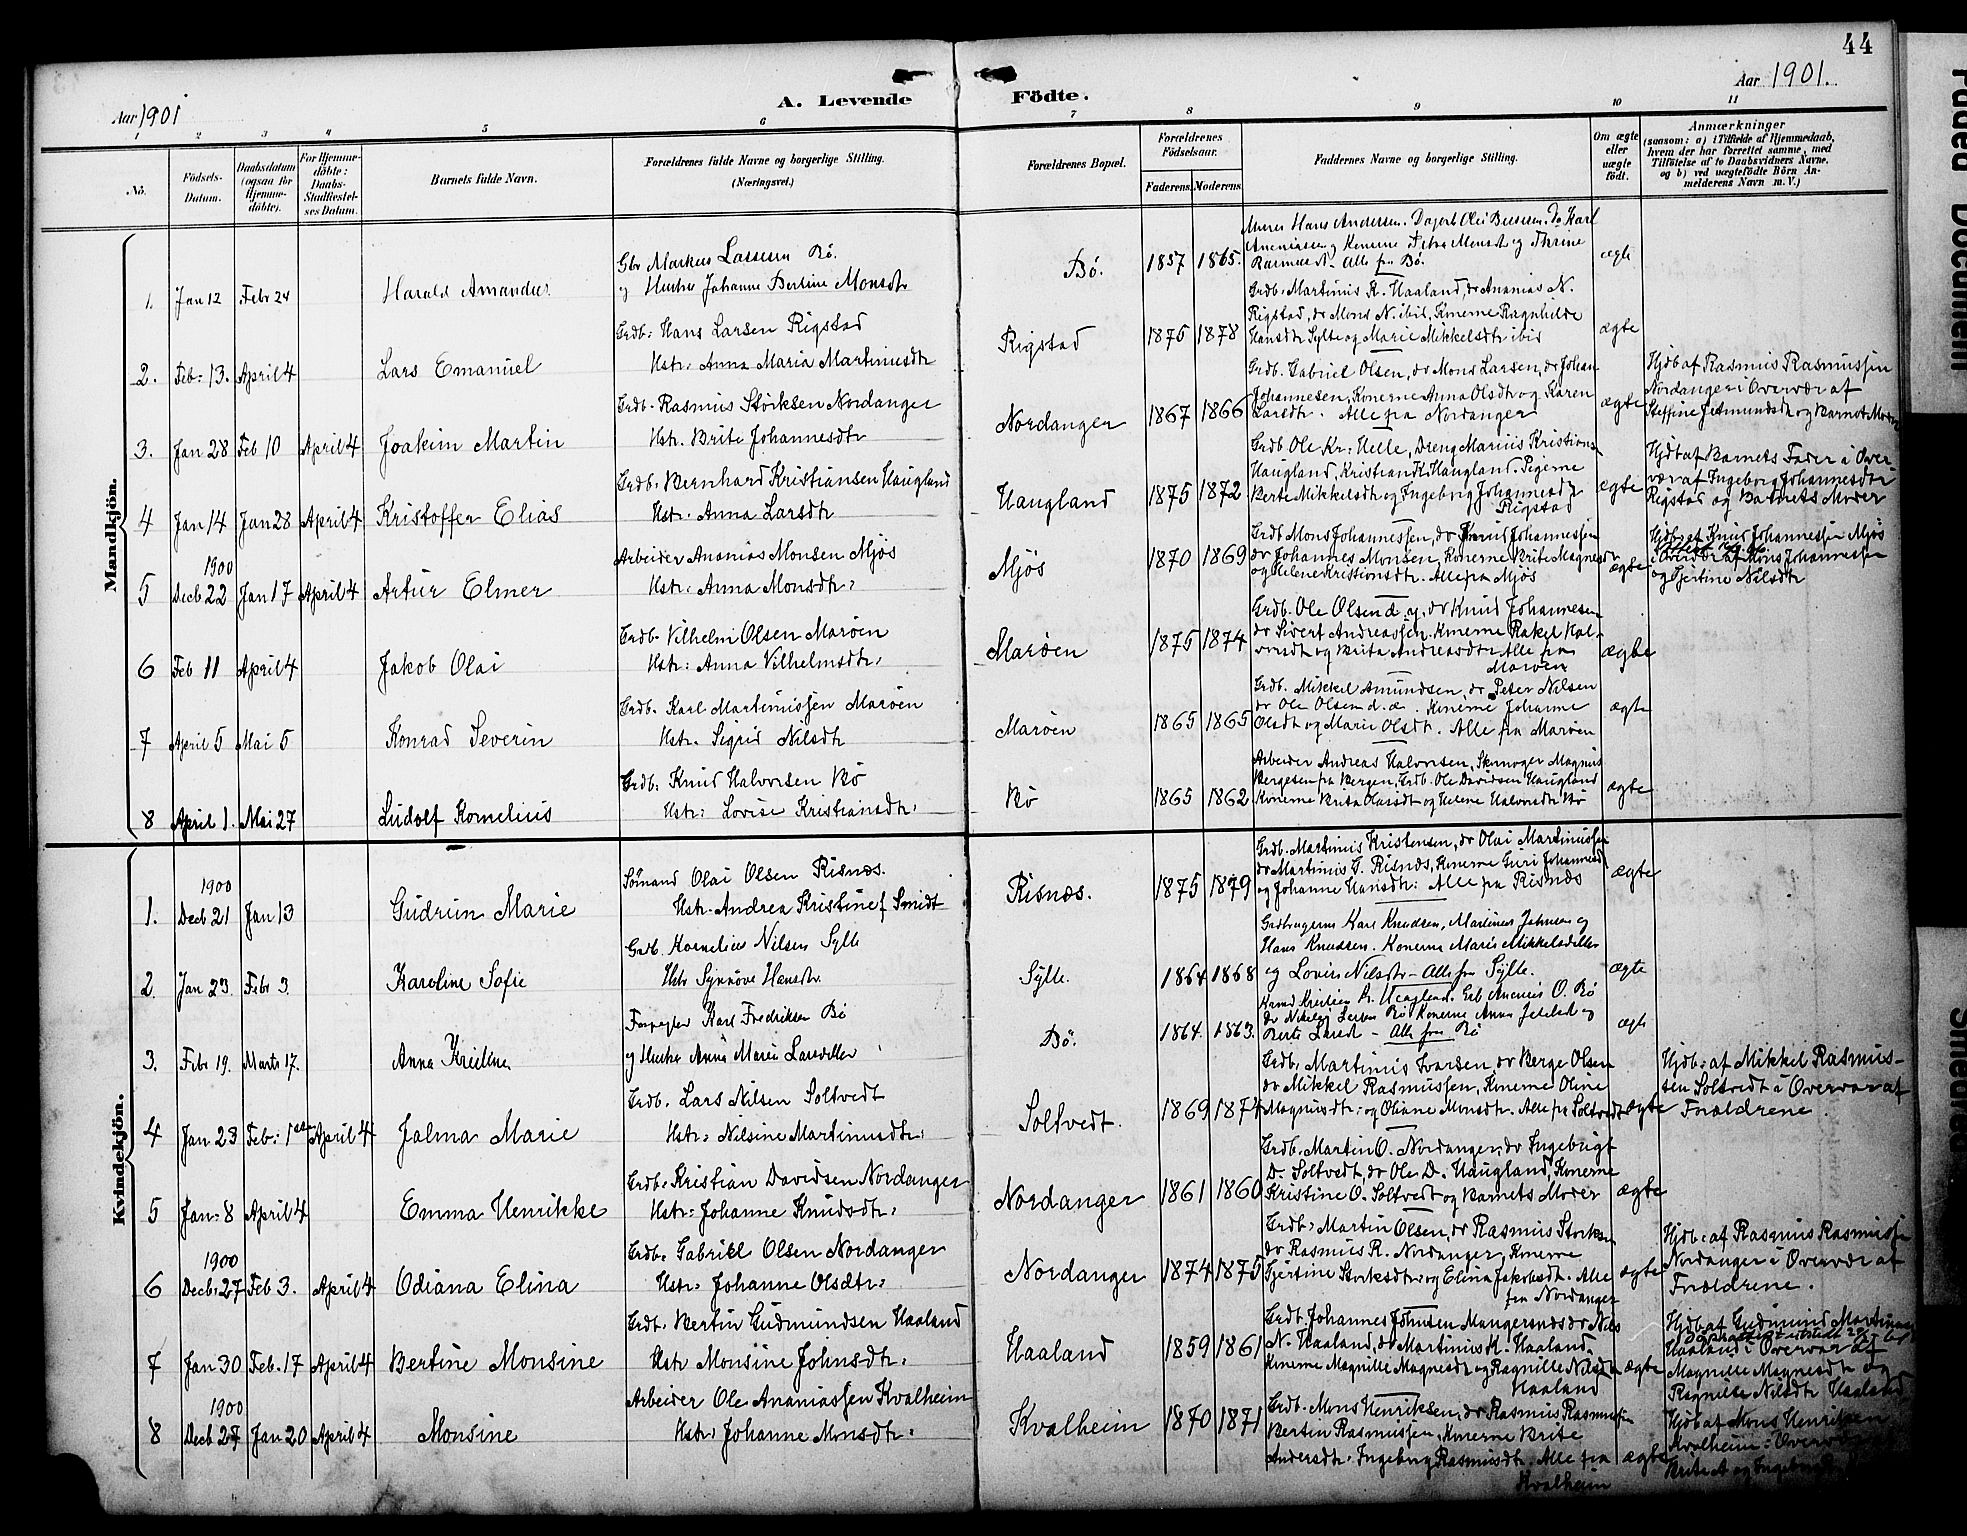 44
Aar 1901
A. Levende Födte.
Aar 1901.
1 2 3 4 5 6 7 8 9 10 11
No.
Födsels-Datum.
Daabsdatum (ogsaa for Hjemme-döbte).
For Hjemme-döbte: Daabs-Stadfæstel-ses Datum.
Barnets fulde Navn.
Forældrenes fulde Navne og borgerlige Stilling. (Næringsvei.)
Forældrenes Bopæl.
Forældrenes Födselsaar.
Faderens. Moderens.
Faddernes Navne og borgerlige Stilling.
Om ægte eller uægte födt.
Anmærkninger
(saasom: a) i Tilfælde af Hjemmedaab, hvem der har forrettet samme, med Tilföielse af to Daabsvidners Navne, og b) ved uægtefödte Börn An-melderens Navn m. V.)
Mandkjön.
1. Jan 12 Febr 24 Harald Amandus
Gbr Markus Lassesen Bø.
og Hustru Johanne Bertine Monsdtr
Bø. 1857 1865.
Hans Andersen. Karl
og Konerne Petra Monsdt og Thrine
Alle fra Bø.
ægte
2. Feb: 13. April 4 Lars Emanuel
Grdb: Hans Larsen Rigstad
Hstr. Anna Maria Martinusdtr
Rigstad 1875 1878
Grdb. Martinus R. Haaland, do Ananias N.
Rigstad, do Mons N. ibid, Konerne Ragnhilde
Hansdtr Sylte og Marie Mikkelsdtr ibid
ægte
3. Jan 28 Feb 10 April 4 Joakim Martin
Grdb. Rasmus Størksen Nordanger
Hstr. Brite Johannesdtr
Nordanger 1867 1866
Grdb. Gabriel Olsen, do Mons Larsen, do Johan
Johannesen, Konerne Anna Olsdtr og Karen
Larsdtr. Alle fra Nordanger
ægte
Hjdb af Rasmus Rasmussen
Nordanger i Overvær af
Steffine Jetmundsdtr og Barnets Moder
4 Jan 14 Jan 28 April 4 Kristoffer Elias
Grdb. Bernhard Kristiansen Haugland
Hstr. Anna Larsdtr
Haugland 1875 1872
Grdb Ole Kr: Helle, Dreng Marius Kristians
Haugland, Kristian K Haugland, Pigerne
Berte Mikkelsdtr og Ingeborg Johannesdtr
Rigstad
ægte
Hjdt af Barnets Fader i Over-
vær af Ingeborg Johannesdtr
Rigstad og Barnets Moder
5 1900 Decb 22 Jan 17 April 4 Artur Elmer
Arbeider Ananias Monsen Mjøs
Hstr. Anna Monsdtr
Mjøs 1870 1869
Grdb Mons Johannessen, do Knud Johannessen
do Johannes Monsen, Konerne Brite Magnesdtr
og Helene Kristiansdtr. Alle fra Mjøs
ægte
Hjdb. af Knud Johannessen Mjøs
i Overvær af Mons Johannessen
og Gjertine Nilsdtr
6 Feb 11 April 4 Jakob Olai
Grdb. Vilhelm Olsen Marøen
Hstr: Anna Vilhelmsdtr.
Marøen 1875 1874
Grdb. Ole Olsen d. y., do Knud Johannesen
do Sivert Andreassen, Konerne Rakel Hal-
vorsdt og Brita Andreasdtr Alle fra
Marøen
ægte
7 April 5 Mai 5 Konrad Severin
Grdb. Karl Martinussen Marøen
Hstr. Sigrid Nilsdtr
Marøen 1865 1865
Grdb. Mikkel Amundsen, do Peter Nilsen
do Ole Olsen d. æ. Konerne Johanne
Olsdt og Marie Olsdt. Alle fra Marøen
ægte
8 April 1. Mai 27 Ludolf Kornelius
Grdb. Knud Halvorsen Bø
Hstr: Lovise Kristiansdtr.
Bø 1865 1862
Arbeider Andreas Halvorsen, Skomager Magnus
Bergesen fra Bergen, Grdb. Ole Davidsen Haugland
Konerne Brita Olavsdt og Helene Halvorsdtr Bø
ægte
Kvindekjön.
1. 1900 Decb 21 Jan 13 Gudrun Marie
Sømand Olai Olsen Risnæs.
Hstr. Andrea Kristine f Smidt
Risnæs. 1875 1879
Grdb. Martinus Kristensen, do Olai Martinussen
do Martinus G. Risnæs, Konerne Guri Johannesd
og Johanne Hansdtr: Alle fra Risnæs
ægte
2. Jan 23. Febr 3. Karoline Sofie
Grdb. Kornelius Nilsen Sylte
Hstr Synnøve Hansdtr.
Sylte. 1864 1868
Grdbrugerne Karl Knudsen, Martinus Johnsen og
Hans Knudsen. Konerne Maria Mikkelsdatter
og Lovise Nilsdtr - Alle fra Sylte.
ægte
3. Febr 19. Marts 17. Anna Kristine
Forpagter Karl Fredriksen Bø
og Hustru Anna Maria Larsdatter
Bø. 1864. 1863.
Haugland. O. Bø
do Nikolai Larsen Bø Konerne Anna og
Berte Larsdt - Alle fra Bø
ægte
4 Jan 23 Feb: 1ste April 4 Jalma Marie
Grdb. Lars Nilsen Soltvedt
Hstr. Nilsine Martinusdtr.
Soltvedt. 1869 1874
Grdb. Martinus Ivarsen, do Berge Olsen
do Mikkel Rasmussen, Konerne Oline
Magnusdtr. og Oliane Monsdtr. Alle fra Soltvedt
ægte
Hjdb: af Mikkel Rasmus-
sen Soltvedt i Overvær af
Forældrene.
5 Jan. 8 April 4 Emma Henrikke
Grdb. Kristian Davidsen Nordanger
Hstr. Johanne Knudsdtr.
Nordanger 1861 1860
Grdb. Martin O. Nordanger, do Ingebrigt
D. Soltvedt, do Ole D. Haugland, Konerne
Kristine O. Soltvedt og Barnets Moder
ægte
6 1900 Decb. 27 Feb 3. April 4 Odiana Elina
Grdb. Gabriel Olsen Nordanger
Hstr. Johanne Olsdtr.
Nordanger 1874 1875
Grdb. Martin Olsen, do Rasmus Storksen
do Rasmus R. Nordanger, Konerne
Gjertine Storksdtr. og Elina Jakobsdt. Alle
fra Nordanger
ægte
Hjdb: af Rasmus Rasmussen
Nordanger i Overvær af
Forældrene.
7 Jan 30 Feb. 17 April 4 Bertine Monsine
Grdb. Bertin Gudmundsen Haaland
Hstr Monsine Johnsdtr.
Haaland 1859 1861
Grdb. Johannes Johnsen Mangersnes do Nils
N. Haaland, do Martinus K. Haaland,
Konerne Magnille Magnesdt og Ragnille Nilsdtr
Haaland
ægte
Hjdb. af Gudmund Martinus
Haaland i Overvær af
Magnille Magnesdt og
Ragnilde Nilsdtr Haaland
8 1900 Decb 27 Jan 20 April 4 Monsine
Arbeider Ole Ananiassen Kvalheim
Hstr. Johanne Monsdtr.
Kvalheim 1870 1871
Grdb. Mons Henriksen, do Rasmus Rasmussen
Bertin Rasmussen, Konerne Brite
Andersdtr. Ingeborg Rasmusdt. Alle fra
Kvalheim
ægte
Hjdb af Mons Henriksen
Kvalheim i Overvær
Brite A og Ingeborg
Faded Document
Smeared